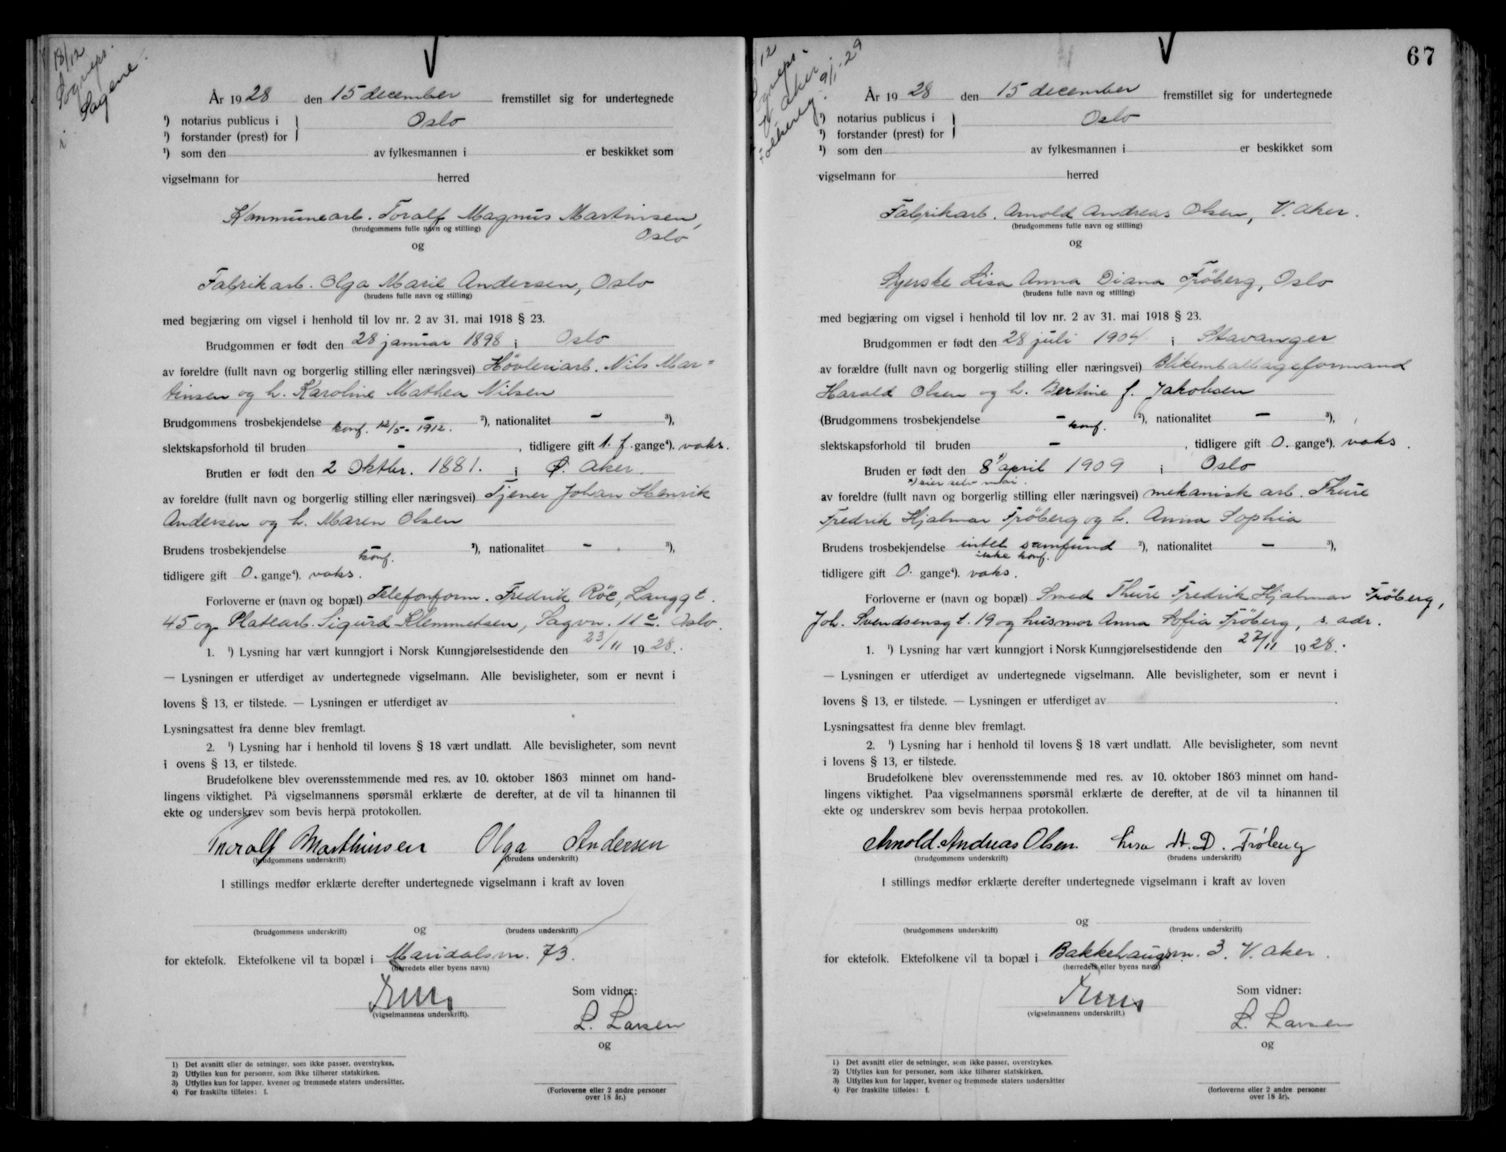 18/12
Sogneps.
i Sagene.
År 1928 den 15 december fremstillet sig for undertegnede
¹) notarius publicus i
Oslo
¹) forstander (prest) for
¹) som den av fylkesmannen i er beskikket som
vigselmann for herred
Kommunearb. Toralf Magnus Martinsen,
(brudgommens fulle navn og stilling)
Oslo
og
Fabrikarb. Olga Marie Andersen, Oslo
(brudens fulle navn og stilling)
med begjæring om vigsel i henhold til lov nr. 2 av 31. mai 1918 § 23.
Brudgommen er født den 28 januar 1898 i Oslo
av foreldre (fullt navn og borgerlig stilling eller næringsvei) Høvleriarb. Nils Mar-
tinsen og h. Karoline Mathea Nilsen
Brudgommens trosbekjendelse konf. 12/5-1912. ²), nationalitet — ³),
slektskapsforhold til bruden — , tidligere gift 1. f. gange⁴). vaks.
Bruden er født den 2 oktbr. 1881. i Ø. Aker.
av foreldre (fullt navn og borgerlig stilling eller næringsvei) Tjener Johan Henrik
Andersen og h. Maren Olsen
Brudens trosbekjendelse — konf. ²), nationalitet - ³),
tidligere gift 0. gange⁴). vaks.
Forloverne er (navn og bopæl) Telefonform. Fredrik Röe, Langgt.
45 og Platearb. Sigurd Klemmetsen, Sagvn. 11c. Oslo.
1. ¹) Lysning har vært kunngjort i Norsk Kunngjørelsestidende den 23/11 1928.
— Lysningen er utferdiget av undertegnede vigselmann. Alle bevisligheter, som er nevnt i
lovens § 13, er tilstede. — Lysningen er utferdiget av
Lysningsattest fra denne blev fremlagt.
2. ¹) Lysning har i henhold til lovens § 18 vært undlatt. Alle bevisligheter, som nevnt
i ovens § 13, er tilstede.
Brudefolkene blev overensstemmende med res. av 10. oktober 1863 minnet om hand-
lingens viktighet. På vigselmannens spørsmål erklærte de derefter, at de vil ta hinannen til
ekte og underskrev som bevis herpå protokollen.
Thoralf Marthinsen Olga Andersen
(brudgommens underskrift) (brudens underskrift)
I stillings medfør erklærte derefter undertegnede vigselmann i kraft av loven
og
(brudgommens underskrift) (brudens underskrift)
for ektefolk. Ektefolkene vil ta bopæl i Maridalsvn. 73.
(herredets eller byens navn)
Som vidner:
(vigselmannens underskrift).
L. Larsen
og
1) Det avsnitt eller de setninger, som ikke passer, overstrykes.
2) Utfylles kun for personer, som ikke tilhører statskirken.
3) Utfylles kun for lapper, kvener og fremmede staters undersåtter.
4) For fraskilte tilføies: f.
(Forloverne eller 2 andre personer
over 18 år.)
67
12
V. Aker
9/1-29
År 1928 den 15 december fremstillet sig for undertegnede
¹) notarius publicus i
Oslo
¹) forstander (prest) for
¹) som den av fylkesmannen i er beskikket som
vigselmann for herred
Fabrikarb. Arnold Andreas Olsen, V. Aker.
(brudgommens fulle navn og stilling)
og
Syerske Lisa Anna Diana Fröberg, Oslo
(brudens fulle navn og stilling)
med begjæring om vigsel i henhold til lov nr. 2 av 31. mai 1918 § 23.
Brudgommen er født den 28 juli 1904 i Stavanger
av foreldre (fullt navn og borgerlig stilling eller næringsvei) Blikemballageformand
Harald Olsen og h. Bertine f. Jakobsen
(Brudgommens trosbekjendelse — konf. ²), nationalitet — ³),
slektskapsforhold til bruden — , tidligere gift 0. gange⁴). vaks.
Bruden er født den 8 april 1909 i Oslo
¹) sier selv mai.
av foreldre (fullt navn og borgerlig stilling eller næringsvei) mekanisk arb. Thure
Fredrik Hjalmar Fröberg og h. Anna Sophia
Brudens trosbekjendelse intet samfund ²), nationalitet — ³),
ikke konf.
tidligere gift 0. gange⁴). vaks.
Forloverne er (navn og bopæl) Smed Thure Fredrik Hjalmar Fröberg,
Joh. Svendsensgt. 19 og husmor Anna Sofia Fröberg, s. adr.
1. ¹) Lysning har vært kunngjort i Norsk Kunngjørelsestidende den 27/11 1928.
— Lysningen er utferdiget av undertegnede vigselmann. Alle bevisligheter, som er nevnt i
lovens § 13, er tilstede. — Lysningen er utferdiget av
Lysningsattest fra denne blev fremlagt.
2. ¹) Lysning har i henhold til lovens § 18 vært undlatt. Alle bevisligheter, som nevnt
i lovens § 13, er tilstede.
Brudefolkene blev overensstemmende med res. av 10. oktober 1863 minnet om hand-
lingens viktighet. Paa vigselmannens spørsmål erklærte de derefter, at de vil ta hinannen til
ekte og underskrev som bevis herpaa protokollen.
Arnold Andreas Olsen. Lisa A. D. Fröberg
(brudgommens underskrift) (brudens underskrift)
I stillings medfør erklærte derefter undertegnede vigselmann i kraft av loven
og
(brudgommens underskrift) (brudens underskrift)
for ektefolk. Ektefolkene vil ta bopæl i Bakkehaugvn. 3. V. Aker.
(herredets eller byens navn)
Som vidner:
(vigselmannens underskrift.)
L. Larsen
og
1) Det avsnitt eller de setninger, som ikke passer, overstrykes.
2) Utfylles kun for personer, som ikke tilhører statskirken.
3) Utfylles kun for lapper, kvener og fremmede staters undersåtter
4) For fraskilte tilføies: f.
(forloverne eller 2 andre personer
over 18 år.)